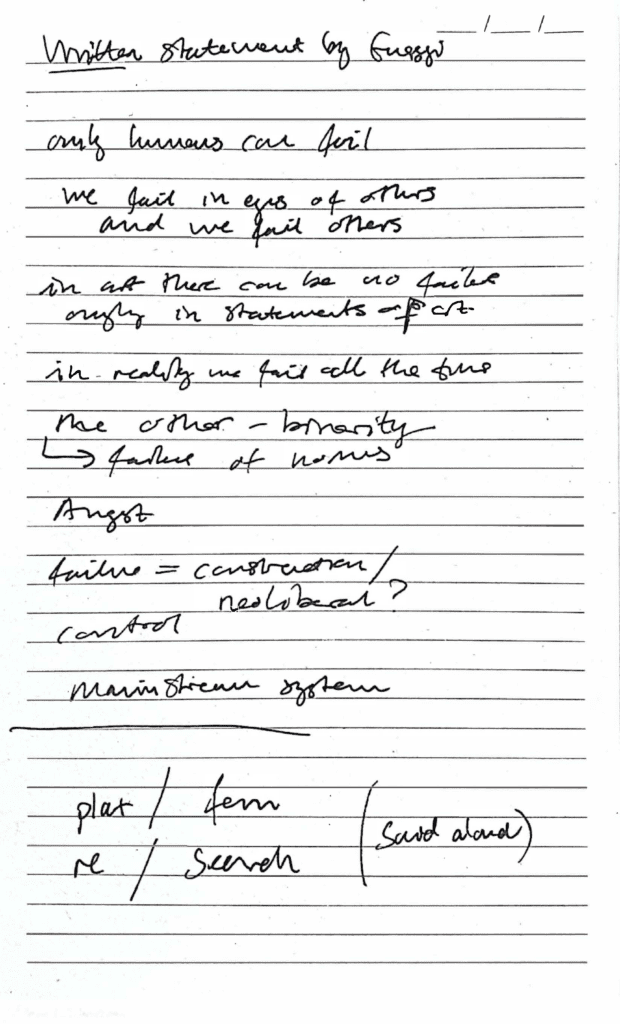 Written statement by
only humans can fail
we fail in eyes of others
and we fail others
in art there can be no failure
only in statements of art
in reality we fail all the time
the other - binarity
↳ failure of norms
Angst
failure = construction /
neoliberal?
control
Mainstream system
plat / form
re / search
(said aloud)